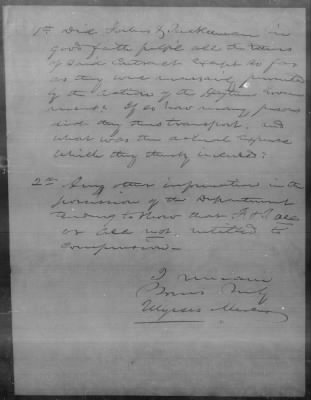 1st Did Forbes & Tuckerman in
good faith fulfil all the terms
of said Contract except so far
as they were necessarily prevented
by the action of the
If so how many persons
did they thus transport, and
what was the actual expense
which they thereby incurred?
2nd Any other information in the
possession of the Department
tending to show that F & T are
or are not entitled to
compensation—
I remain
Yours Truly
Ulysses